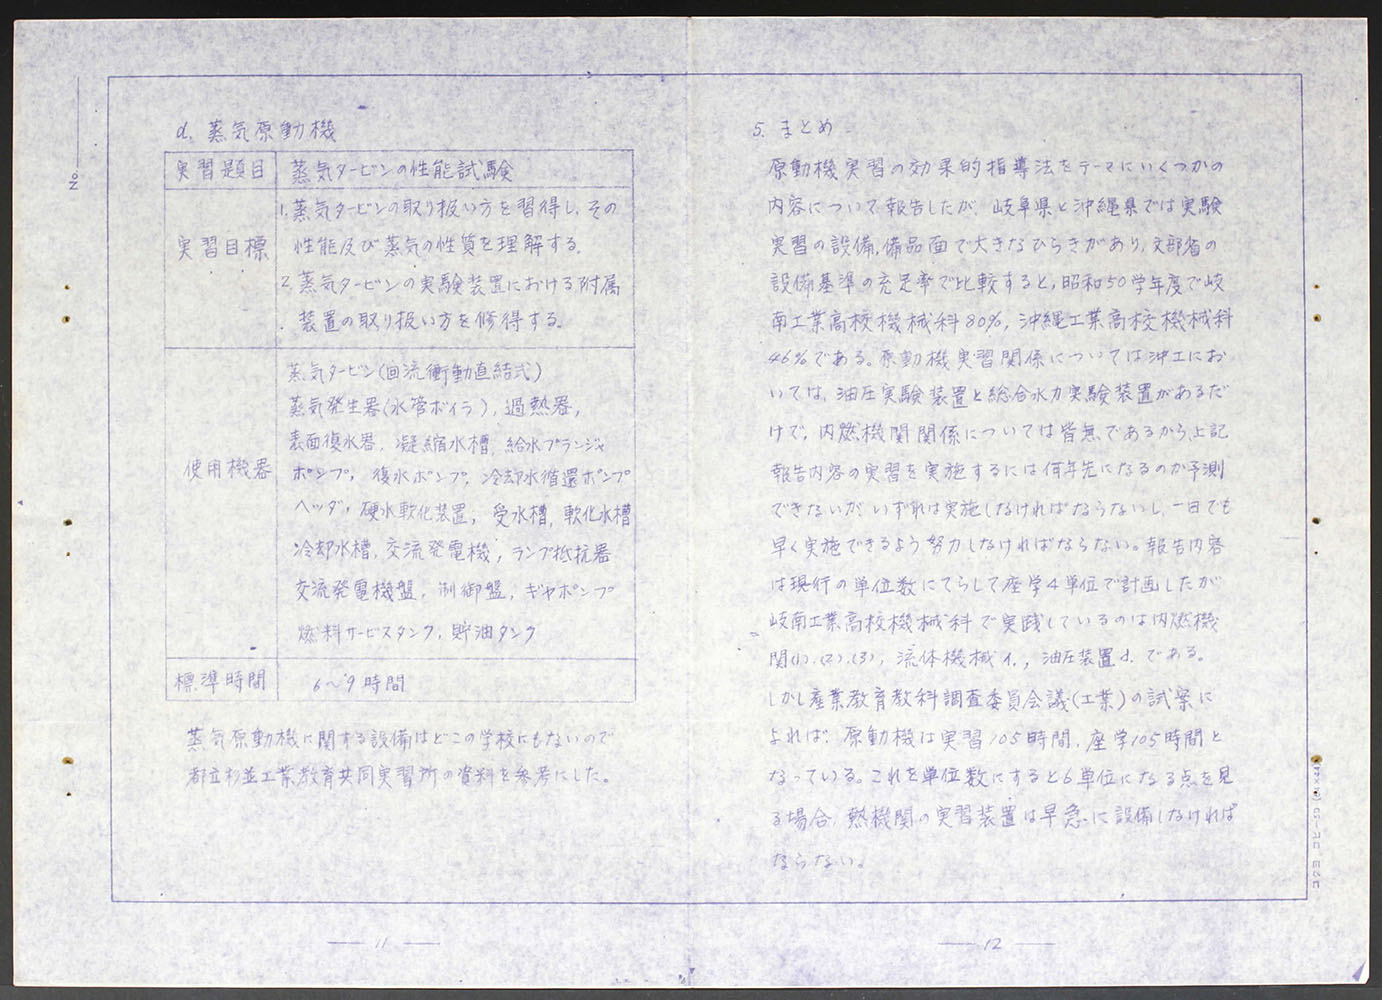 No.
d. 蒸気原動機
実習題目 蒸気タービンの性能試験
実習目標
1. 蒸気タービンの取り扱い方を習得し、その
性能及び蒸気の性質を理解する。
2. 蒸気タービンの実験装置における附属
装置の取り扱い方を修得する。
使用機器
蒸気タービン(回流衝動直結式)
蒸気発生器(水管ボイラ), 過熱器,
表面復水器, 凝縮水槽, 給水プランジャ
ポンプ, 復水ポンプ, 冷却水循還ポンプ
ヘッダ, 硬水軟化装置, 受水槽, 軟化水槽
冷却水槽, 交流発電機, ランプ抵抗器
交流発電機盤, 制御盤, ギヤポンプ
燃料サービスタンク, 貯油タンク
標準時間 6〜9時間
蒸気原動機に関する設備はどこの学校にもないので
都立杉並工業教育共同実習所の資料を参考にした。
11
5. まとめ
原動機実習の効果的指導法をテーマにいくつかの
内容について報告したが、岐阜県と沖縄県では実験
実習の設備, 備品面で大きなひらきがあり, 文部省の
設備基準の充足率で比較すると, 昭和50学年度で岐
南工業高校機械科80%, 沖縄工業高校機械科
46%である。原動機実習関係については沖工にお
いては, 油圧実験装置と総合水力実験装置があるだ
けで, 内燃機関関係については皆無であるから, 上記
報告内容の実習を実施するには何年先になるのか予測
できないが いずれは実施しなければならないし, 一日でも
早く実施できるよう努力しなければならない。報告内容
は現行の単位数にてらして座学4単位で計画したが
岐南工業高校機械科で実践しているのは内燃機
関(1),(2),(3), 流体機械イ., 油圧装置d. である。
しかし産業教育教科調査委員会議(工業)の試案に
よれば, 原動機は実習105時間, 座学105時間と
なっている。これを単位数にすると6単位になる点を見
る場合, 熱機関の実習装置は早急に設備しなければ
ならない。
12